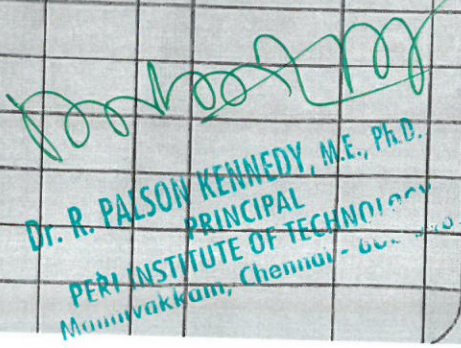 Dr. R. PALSON KENNEDY, M.E., Ph.D.
PRINCIPAL
PERI INSTITUTE OF TECHNOLOGY
Mannivakkam, Chennai -